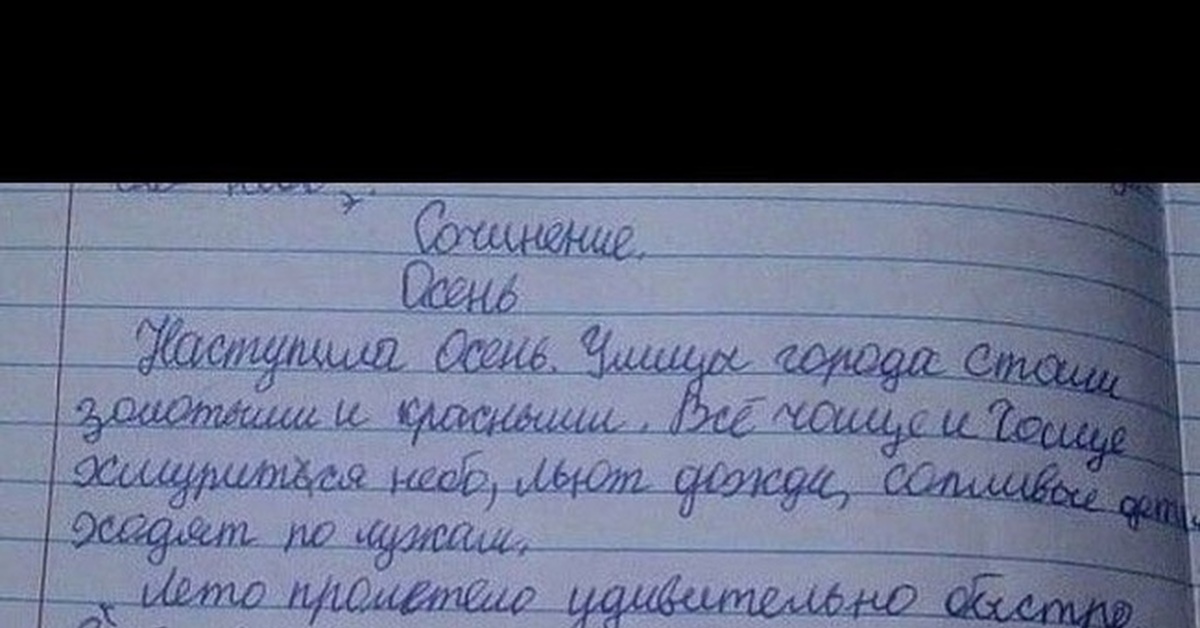 Сочинение.
Осень
Наступила Осень. Улицы города стали
золотыми и красными. Всё чаще и чаще
хмуриться небо, льют дожди, сопливые дети
ходят по лужам.
Лето пролетело удивительно быстро